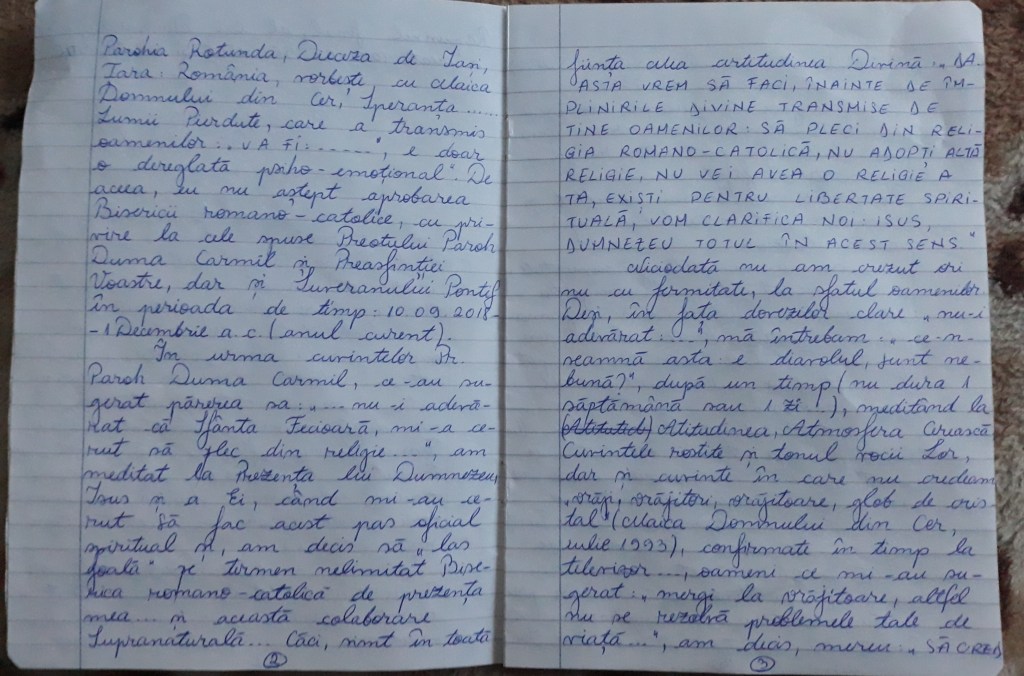 Parohia Rotunda, Dieceza de Iași,
Țara: România, vorbește cu Maica
Domnului din Cer, Speranța.....
Lumii Pierdute, care a transmis
oamenilor: „VA FI:.......", e doar
o dereglată psiho-emoțional". De
aceea, eu nu aștept aprobarea
Bisericii romano-catolice, cu pri-
vire la cele spuse Preotului Paroh
Duma Carmil și Preasfinției
Voastre, dar și Suveranului Pontif
în perioada de timp: 10.09.2018-
-1 Decembrie a.c. (anul curent).
În urma cuvintelor Pr.
Paroh Duma Carmil, ce-au su-
gerat părerea sa: „.... nu-i adevă-
rat că Sfânta Fecioară, mi-a ce-
rut să plec din religie....", am
meditat la Prezența lui Dumnezeu,
Isus și a Ei, când mi-au ce-
rut să fac acest pas oficial
spiritual și, am decis să „las
goală" pe termen nelimitat Bise-
rica romano-catolică de prezența
mea... și această colaborare
Supranaturală... Căci, simt în toată
2
ființa mea atitudinea Divină: „DA.
ASTA VREM SĂ FACI, ÎNAINTE DE ÎM-
PLINIRILE DIVINE TRANSMISE DE
TINE OAMENILOR: SĂ PLECI DIN RELI-
GIA ROMANO-CATOLICĂ, NU ADOPȚI ALTĂ
RELIGIE, NU VEI AVEA O RELIGIE A
TA, EXIȘTI PENTRU LIBERTATE SPIRI-
TUALĂ, VOM CLARIFICA NOI: ISUS,
DUMNEZEU TOTUL ÎN ACEST SENS."
Niciodată nu am crezut ori
nu cu fermitate, la sfatul oamenilor.
Deși, în fața dovezilor clare „nu-i
adevărat:...", mă întrebam: „ce-n-
seamnă asta: e diavolul, sunt ne-
bună?", după un timp (nu dura 1
săptămână sau 1 zi...), meditând la
Atitudinea, Atmosfera Cerească
Cuvintele rostite și tonul vocii Lor,
dar și cuvinte în care nu credeam
„vrăji, vrăjitori, vrăjitoare, glob de cris-
tal" (Maica Domnului din Cer,
iulie 1993), confirmate în timp la
televizor..., oameni ce mi-au su-
gerat: „mergi la vrăjitoare, altfel
nu se rezolvă problemele tale de
viață...", am decis, mereu: „SĂ CRED
3